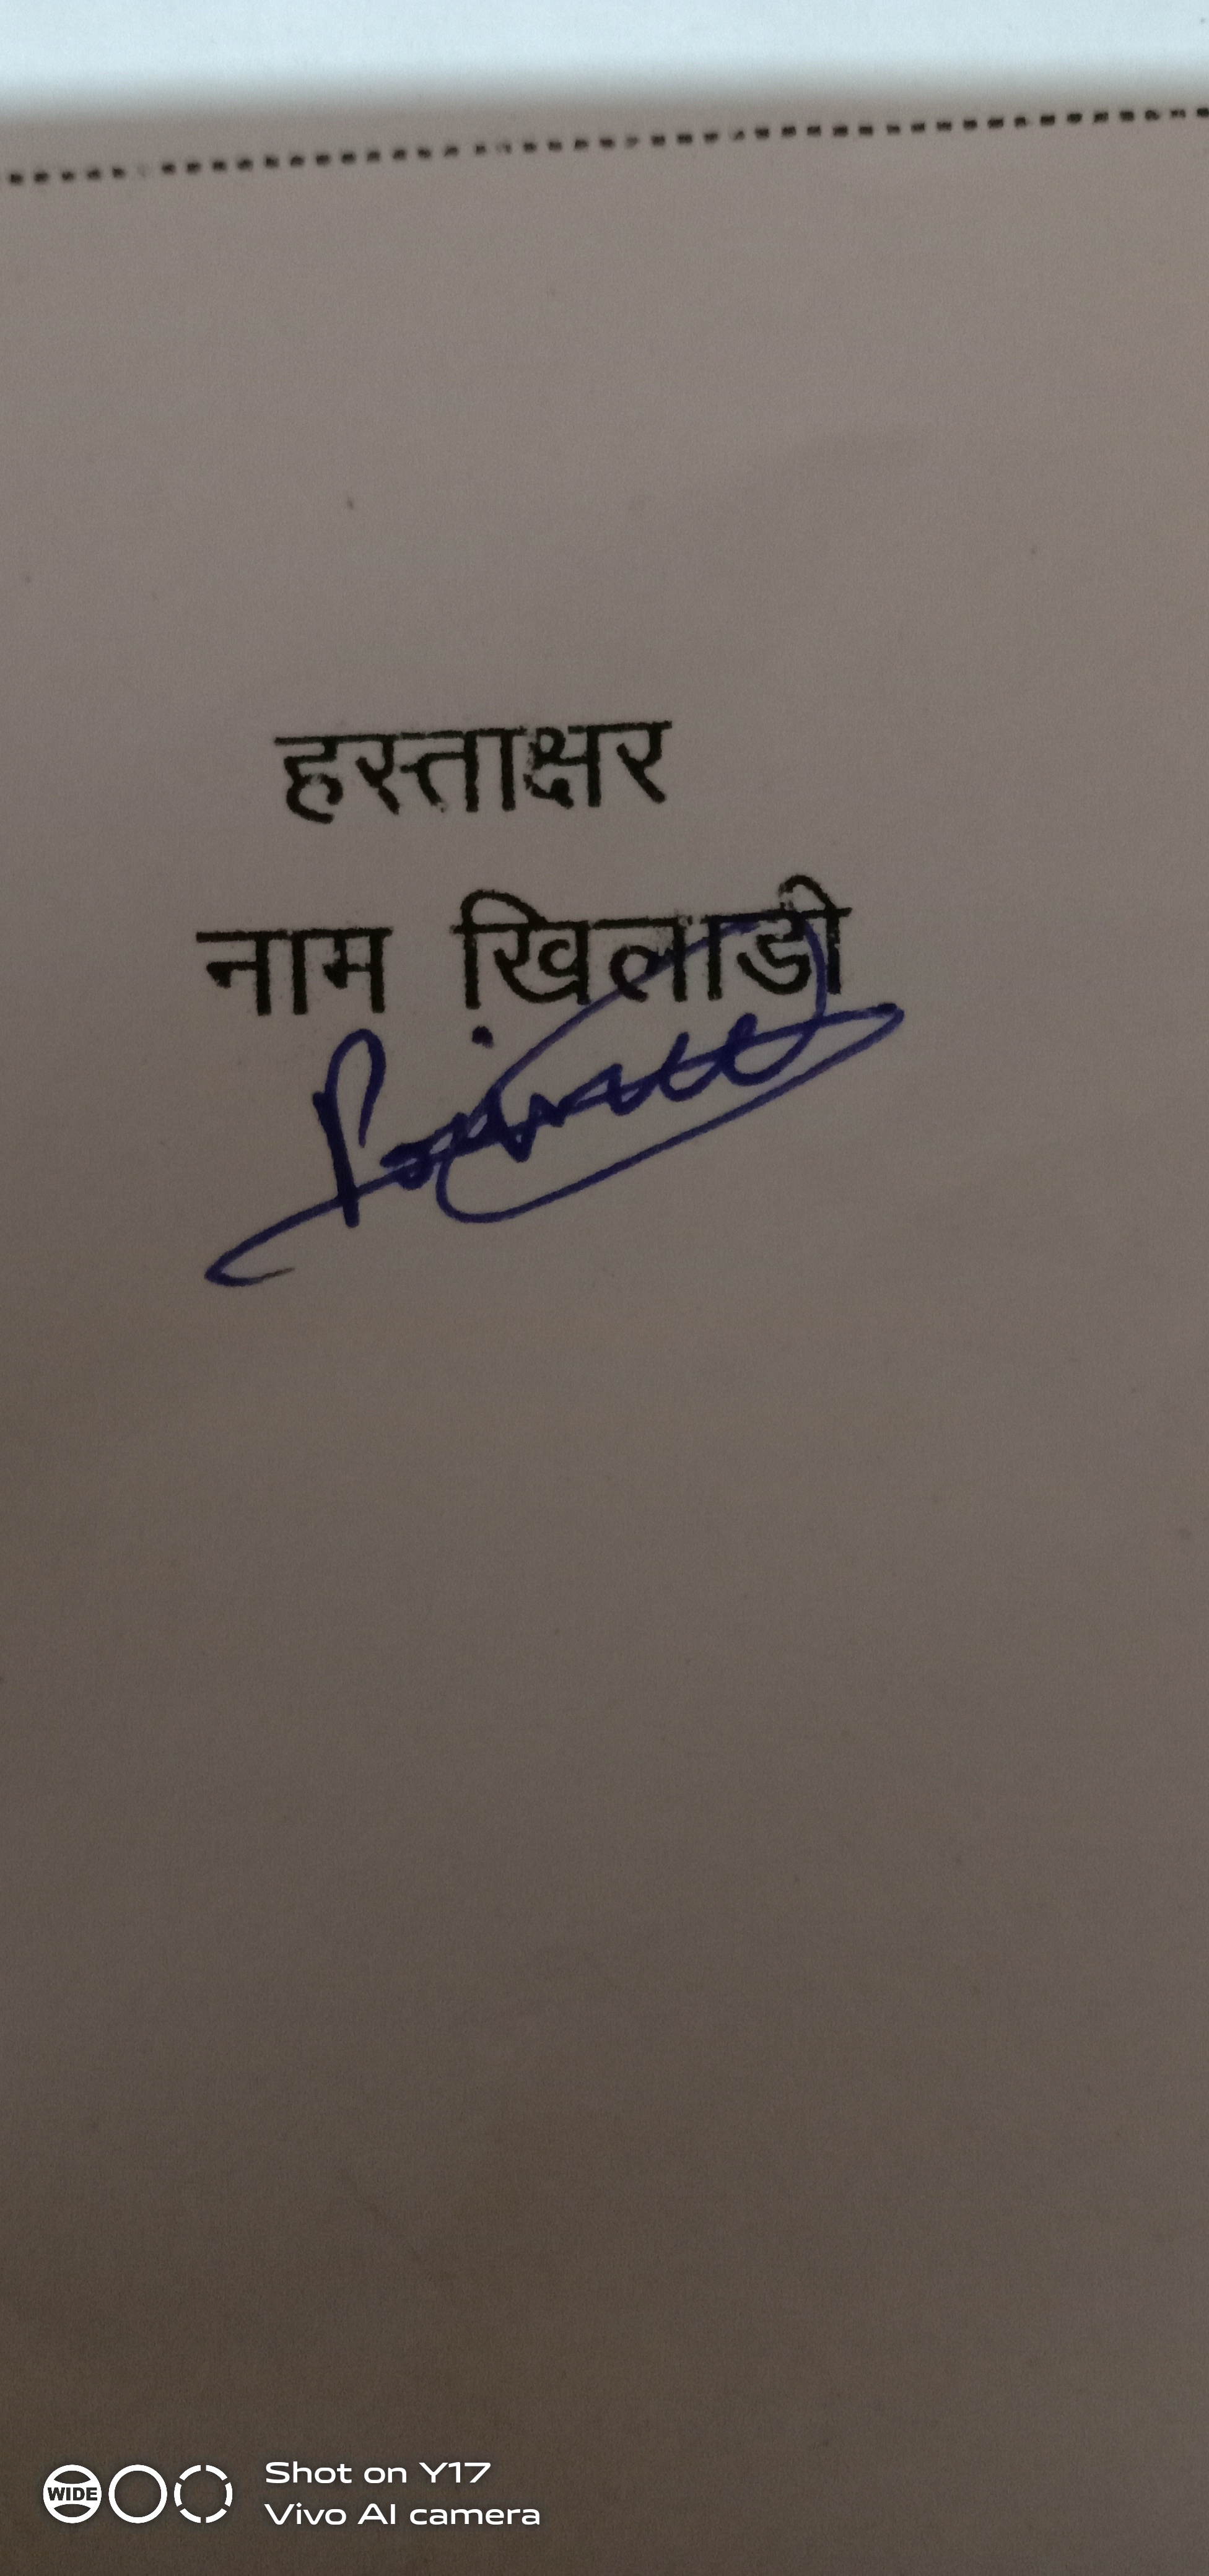 हस्ताक्षर
नाम खिलाडी
WIDE
Shot on Y17
Vivo AI camera